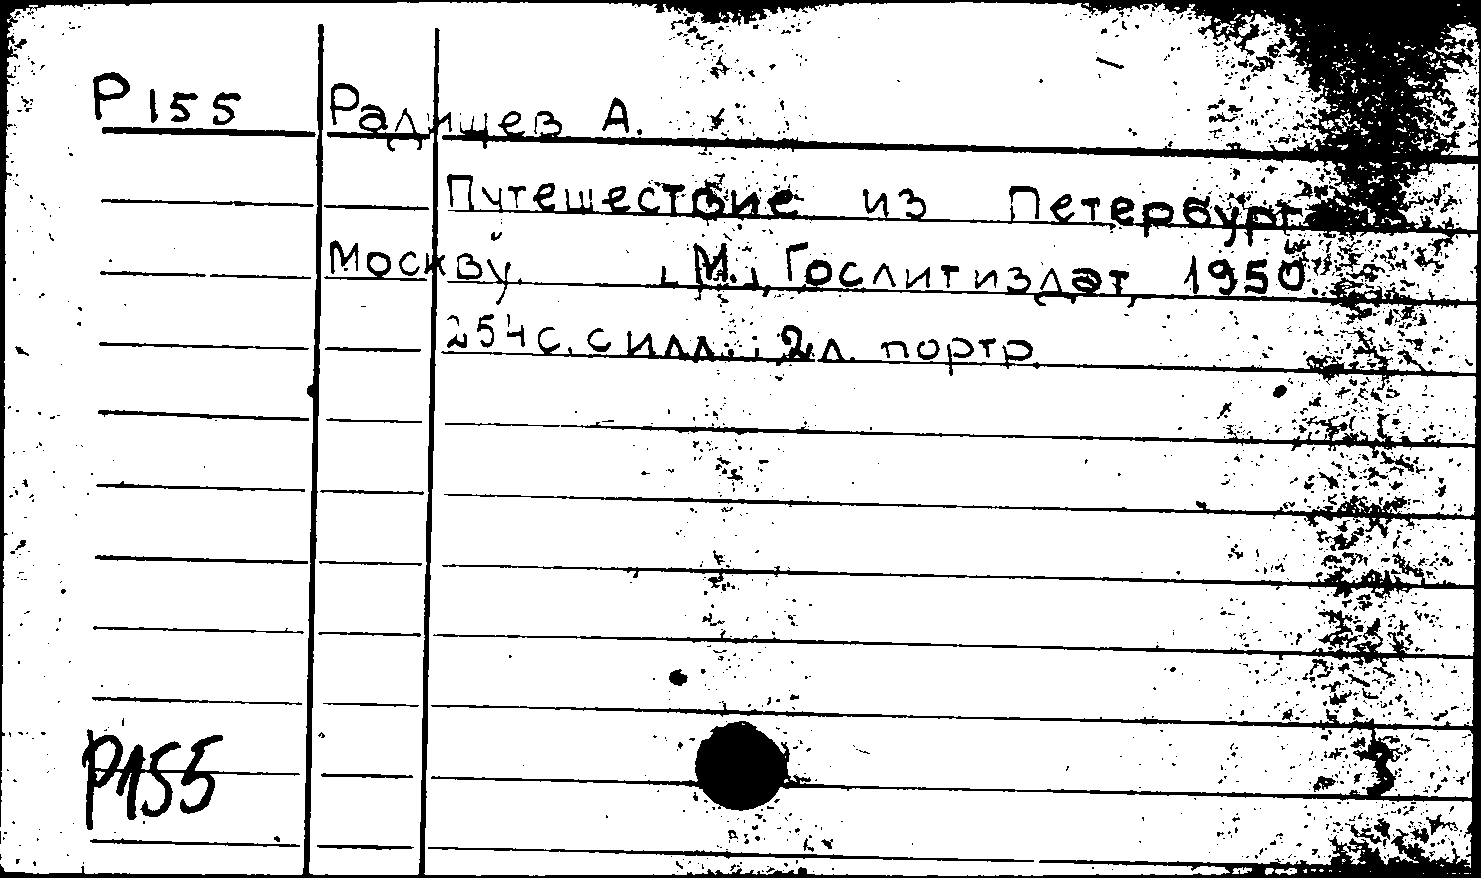 Р 155 Радищев А.
Путешествие из Петербурга в
Москву. , М., Гослитиздат, 1950.
254с. с илл.; 2л. портр.
Р155 3